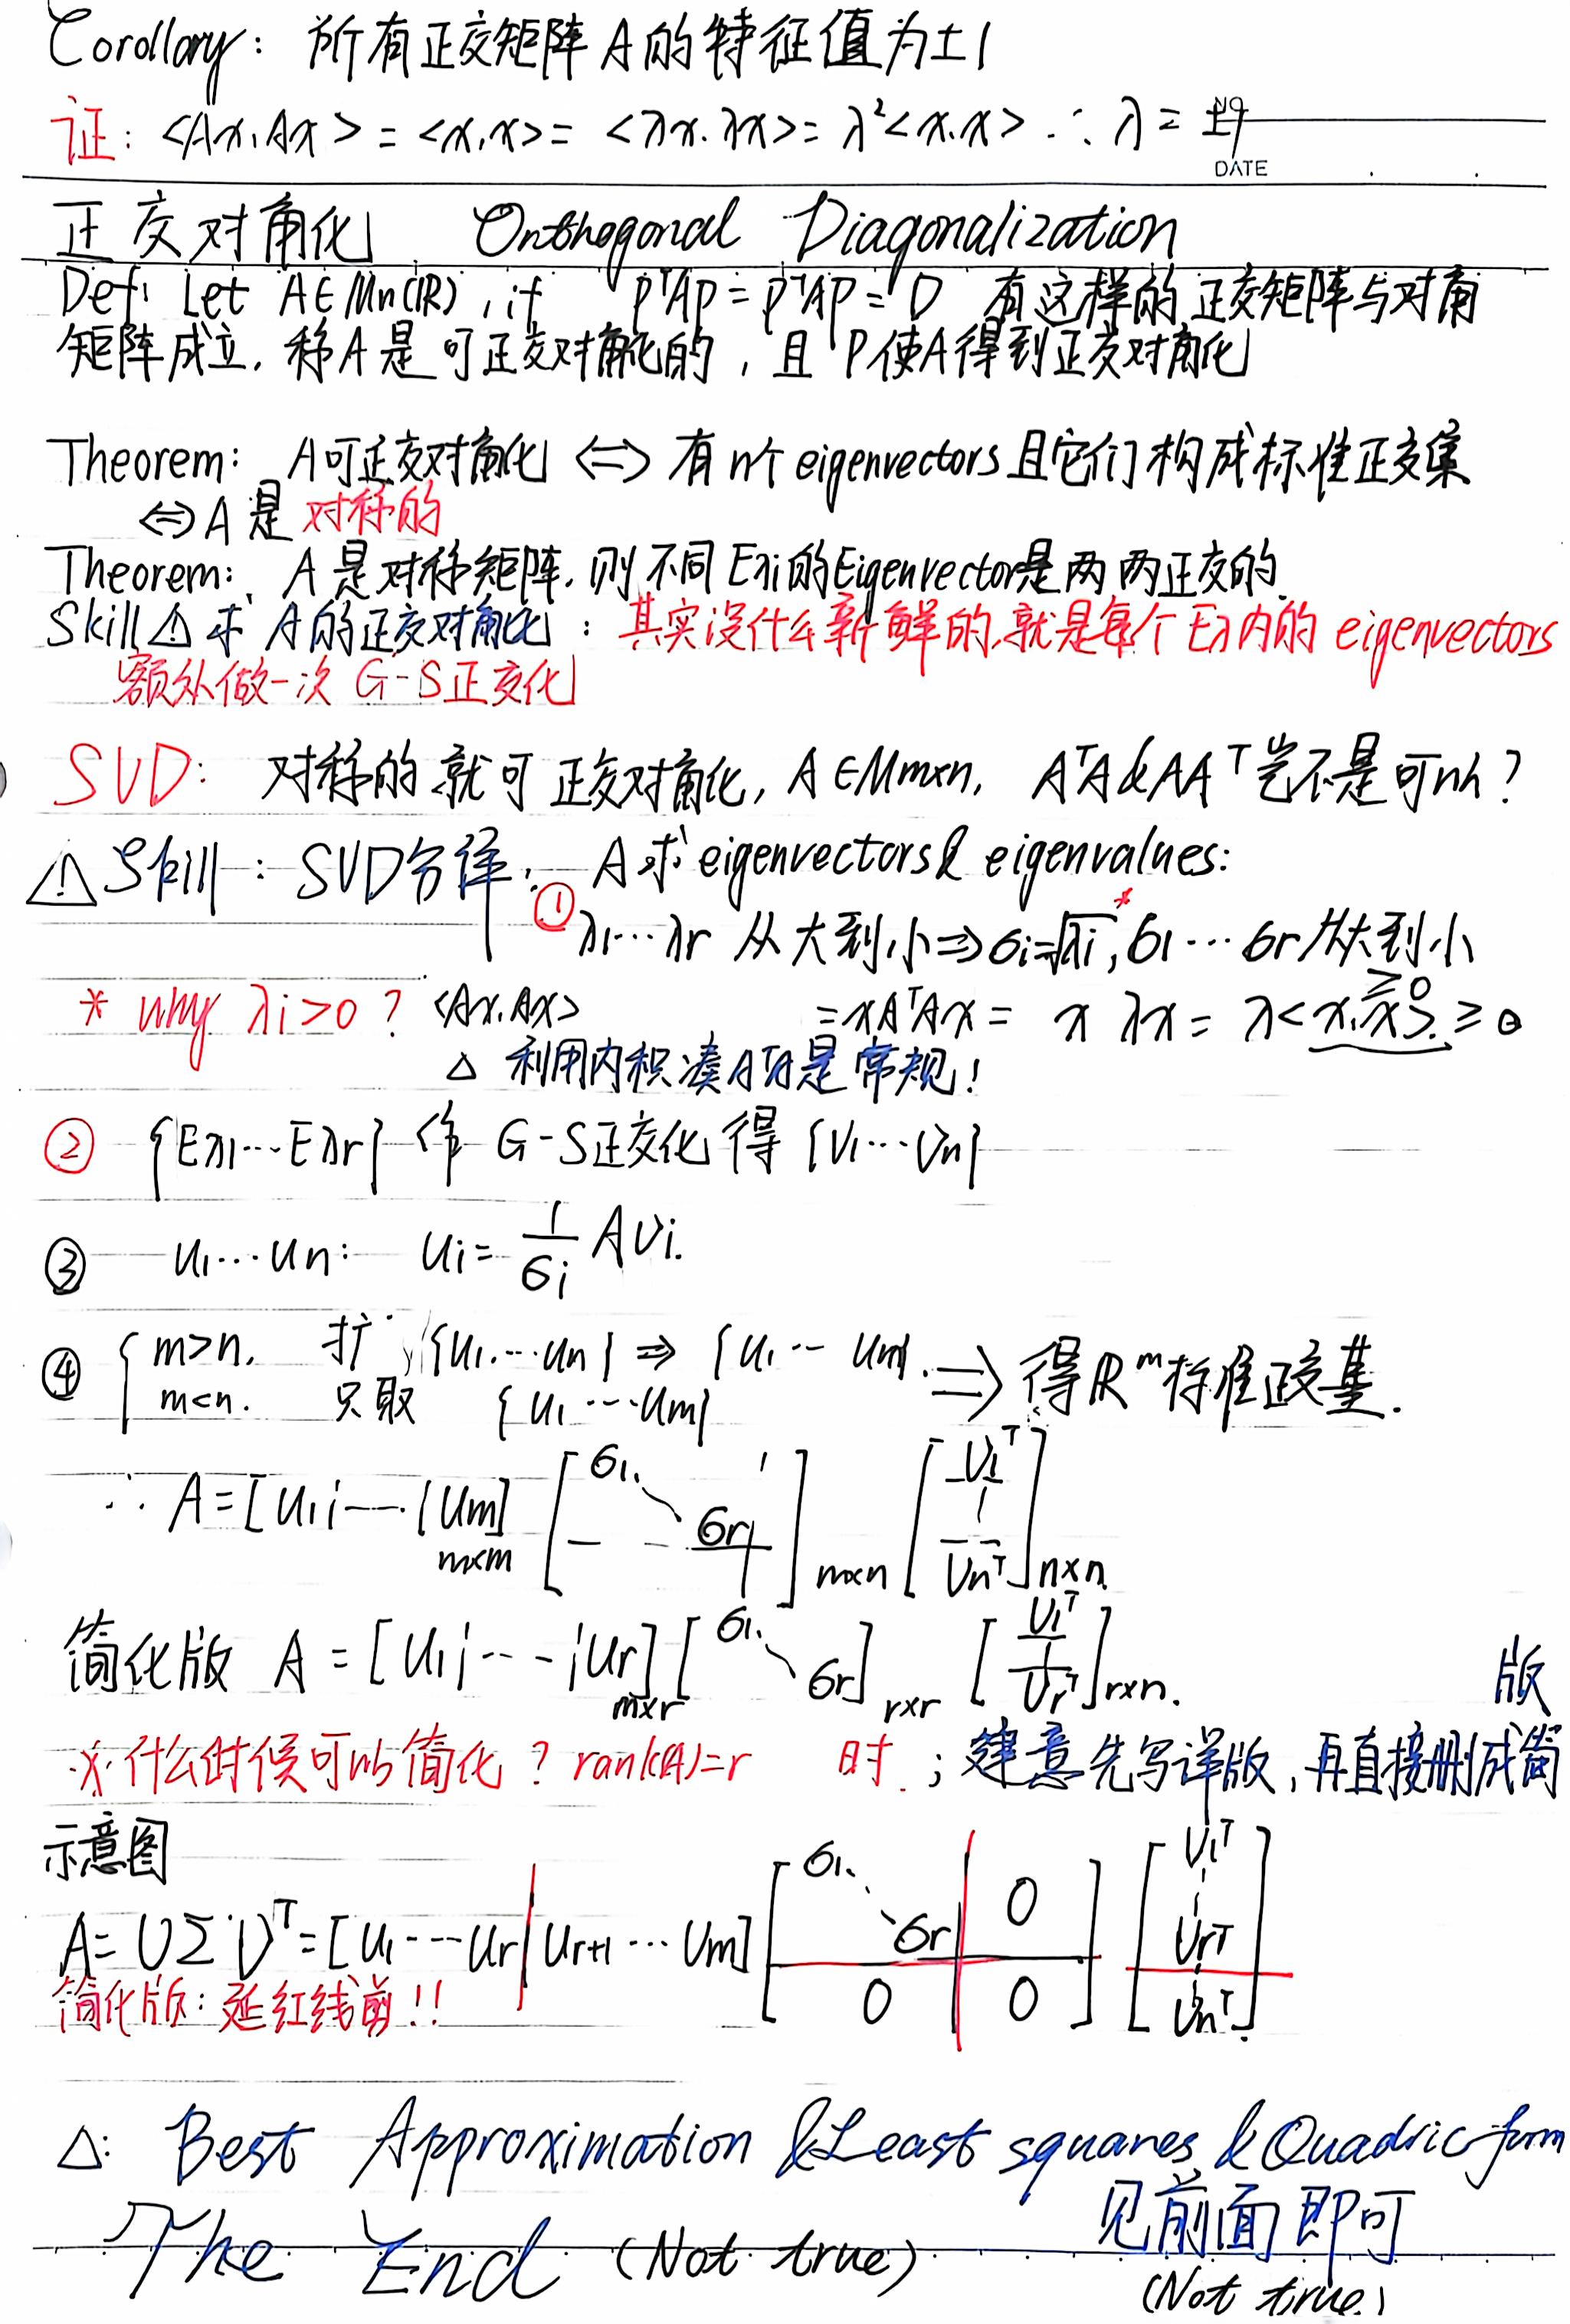 Corollary: 所有正交矩阵A的特征值为±1
NO
证: <Ax,Ax> = <x,x> = <λx.λx> = λ²<x.x> ∴ λ = ±1
DATE
正交对角化 Orthogonal Diagonalization
Def: Let A∈Mn(ℝ), if P⁻¹AP = PᵀAP = D 有这样的正交矩阵与对角
矩阵成立, 称A是可正交对角化的, 且P使A得到正交对角化
Theorem: A可正交对角化 ⇔ 有n个eigenvectors且它们构成标准正交集
⇔ A是对称的
Theorem: A是对称矩阵, 则不同Eλi的Eigenvector是两两正交的.
Skill⚠ 求A的正交对角化: 其实没什么新鲜的,就是每个Eλ内的eigenvectors
额外做一次G-S正交化
SVD: 对称的就可正交对角化, A∈Mm×n, AᵀA & AAᵀ岂不是可nb?
⚠ Skill: SVD分解: ① A求eigenvectors & eigenvalues:
λ1…λr 从大到小 ⇒ σi=√λi*, σ1…σr从大到小
* why λi>0? <Ax,Ax> = xAᵀAx = x λx = λ<x,x> ≥0 ≥ 0
△ 利用内积凑AᵀA是常规!
② {Eλ1…Eλr} 作G-S正交化得{v1…vn}
③ u1…un: ui = 1/σi Avi.
④ { m>n, 扩{u1…un} ⇒ {u1…um}
m<n. 只取{u1…um} ⇒ 得ℝᵐ标准正交基.
∴ A = [u1¦…¦um]m×m [σ1 ⋱ σr]m×n [v1ᵀ ¦ vnᵀ]n×n
简化版 A = [u1¦---¦ur]m×r [σ1 ⋱ σr]r×r [v1ᵀ ¦ vrᵀ]r×n. 版
※什么时候可nb简化? rank(A)=r 时.; 建意先写详版, 再直接删成简
示意图
A = UΣVᵀ = [u1---ur | ur+1…um] [σ1 ⋱ σr 0 0 0] [v1ᵀ ⋮ vrᵀ ⋮ vnᵀ]
简化版: 延红线剪!!
△: Best Approximation & Least squares & Quadric form
见前面即可
The End (Not true)
(Not true)